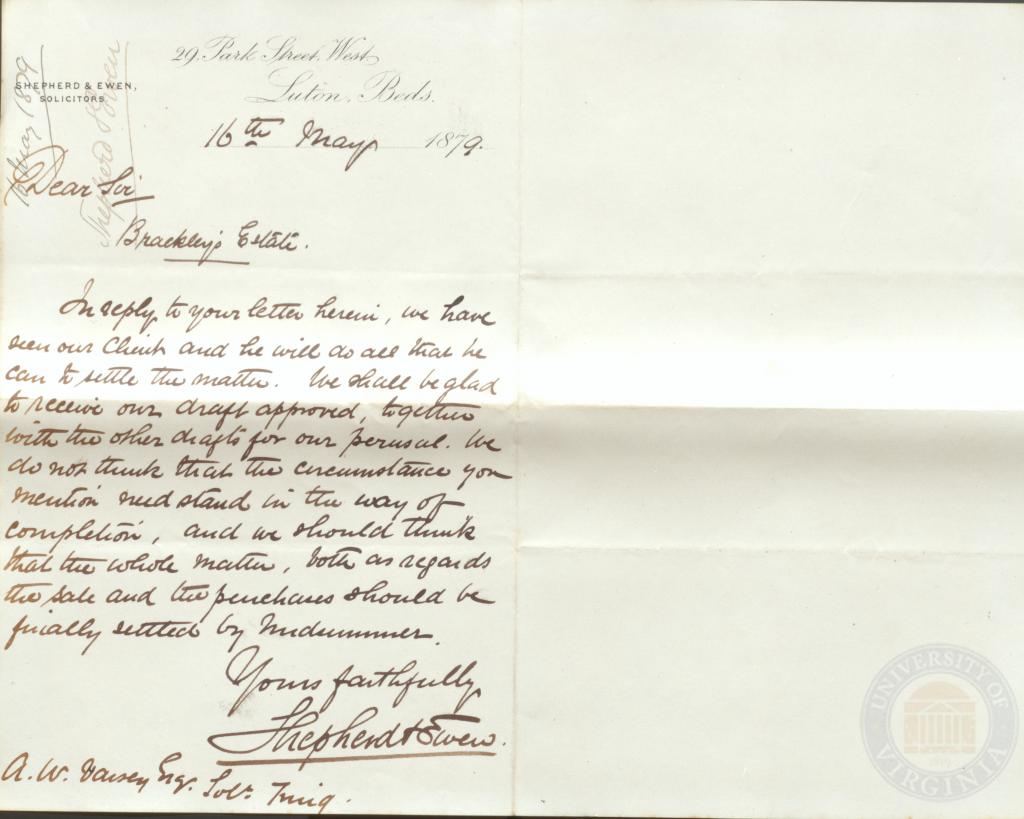 29, Park Street West,
Luton, Beds.
SHEPHERD & EWEN,
SOLICITORS.
16 May 1879
Shepherd & Ewen
16th May 1879.
Dear Sir
Brackley's Estate.
In reply to your letter herein, we have
seen our Client and he will do all that he
can to settle the matter. We shall be glad
to receive our draft approved, together
with the other drafts for our perusal. We
do not think that the circumstance you
mention need stand in the way of
completion, and we should think
that the whole matter, both as regards
the sale and the purchases should be
finally settled by Midsummer.
Yours faithfully
Shepherd & Ewen.
A. W. Vaisey Esqr. Solr. Tring.
UNIVERSITY OF VIRGINIA
1819